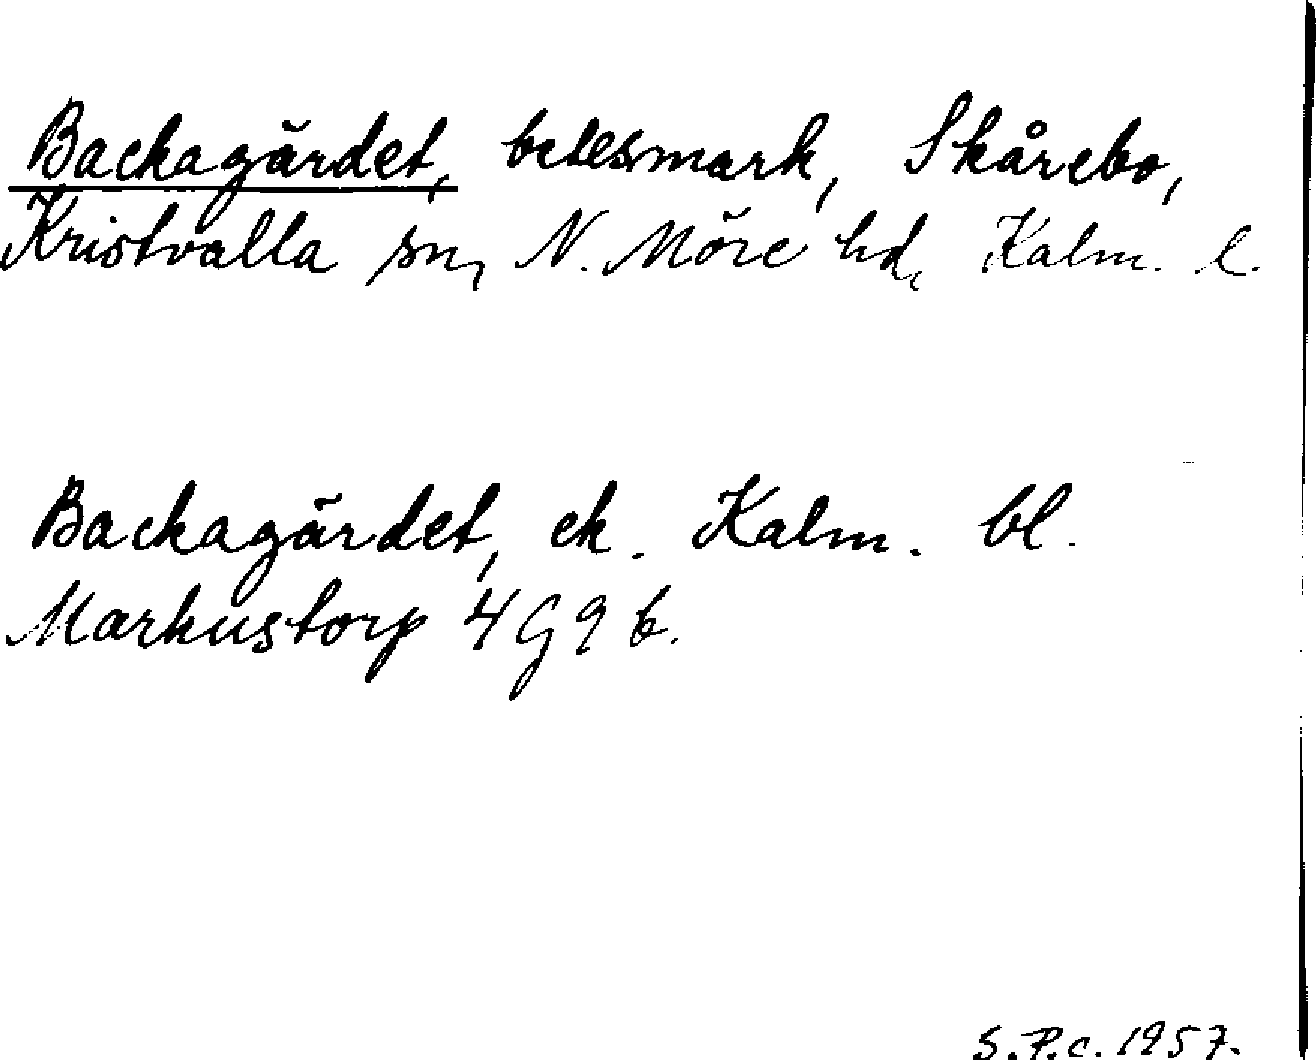 Backagärdet, betesmark, Skårebo,
Kristvalla sn, N. Möre hd, Kalm. l.
Backagärdet, ek. Kalm. bl.
Markustorp 4G9b.
S.P.c. 1957.